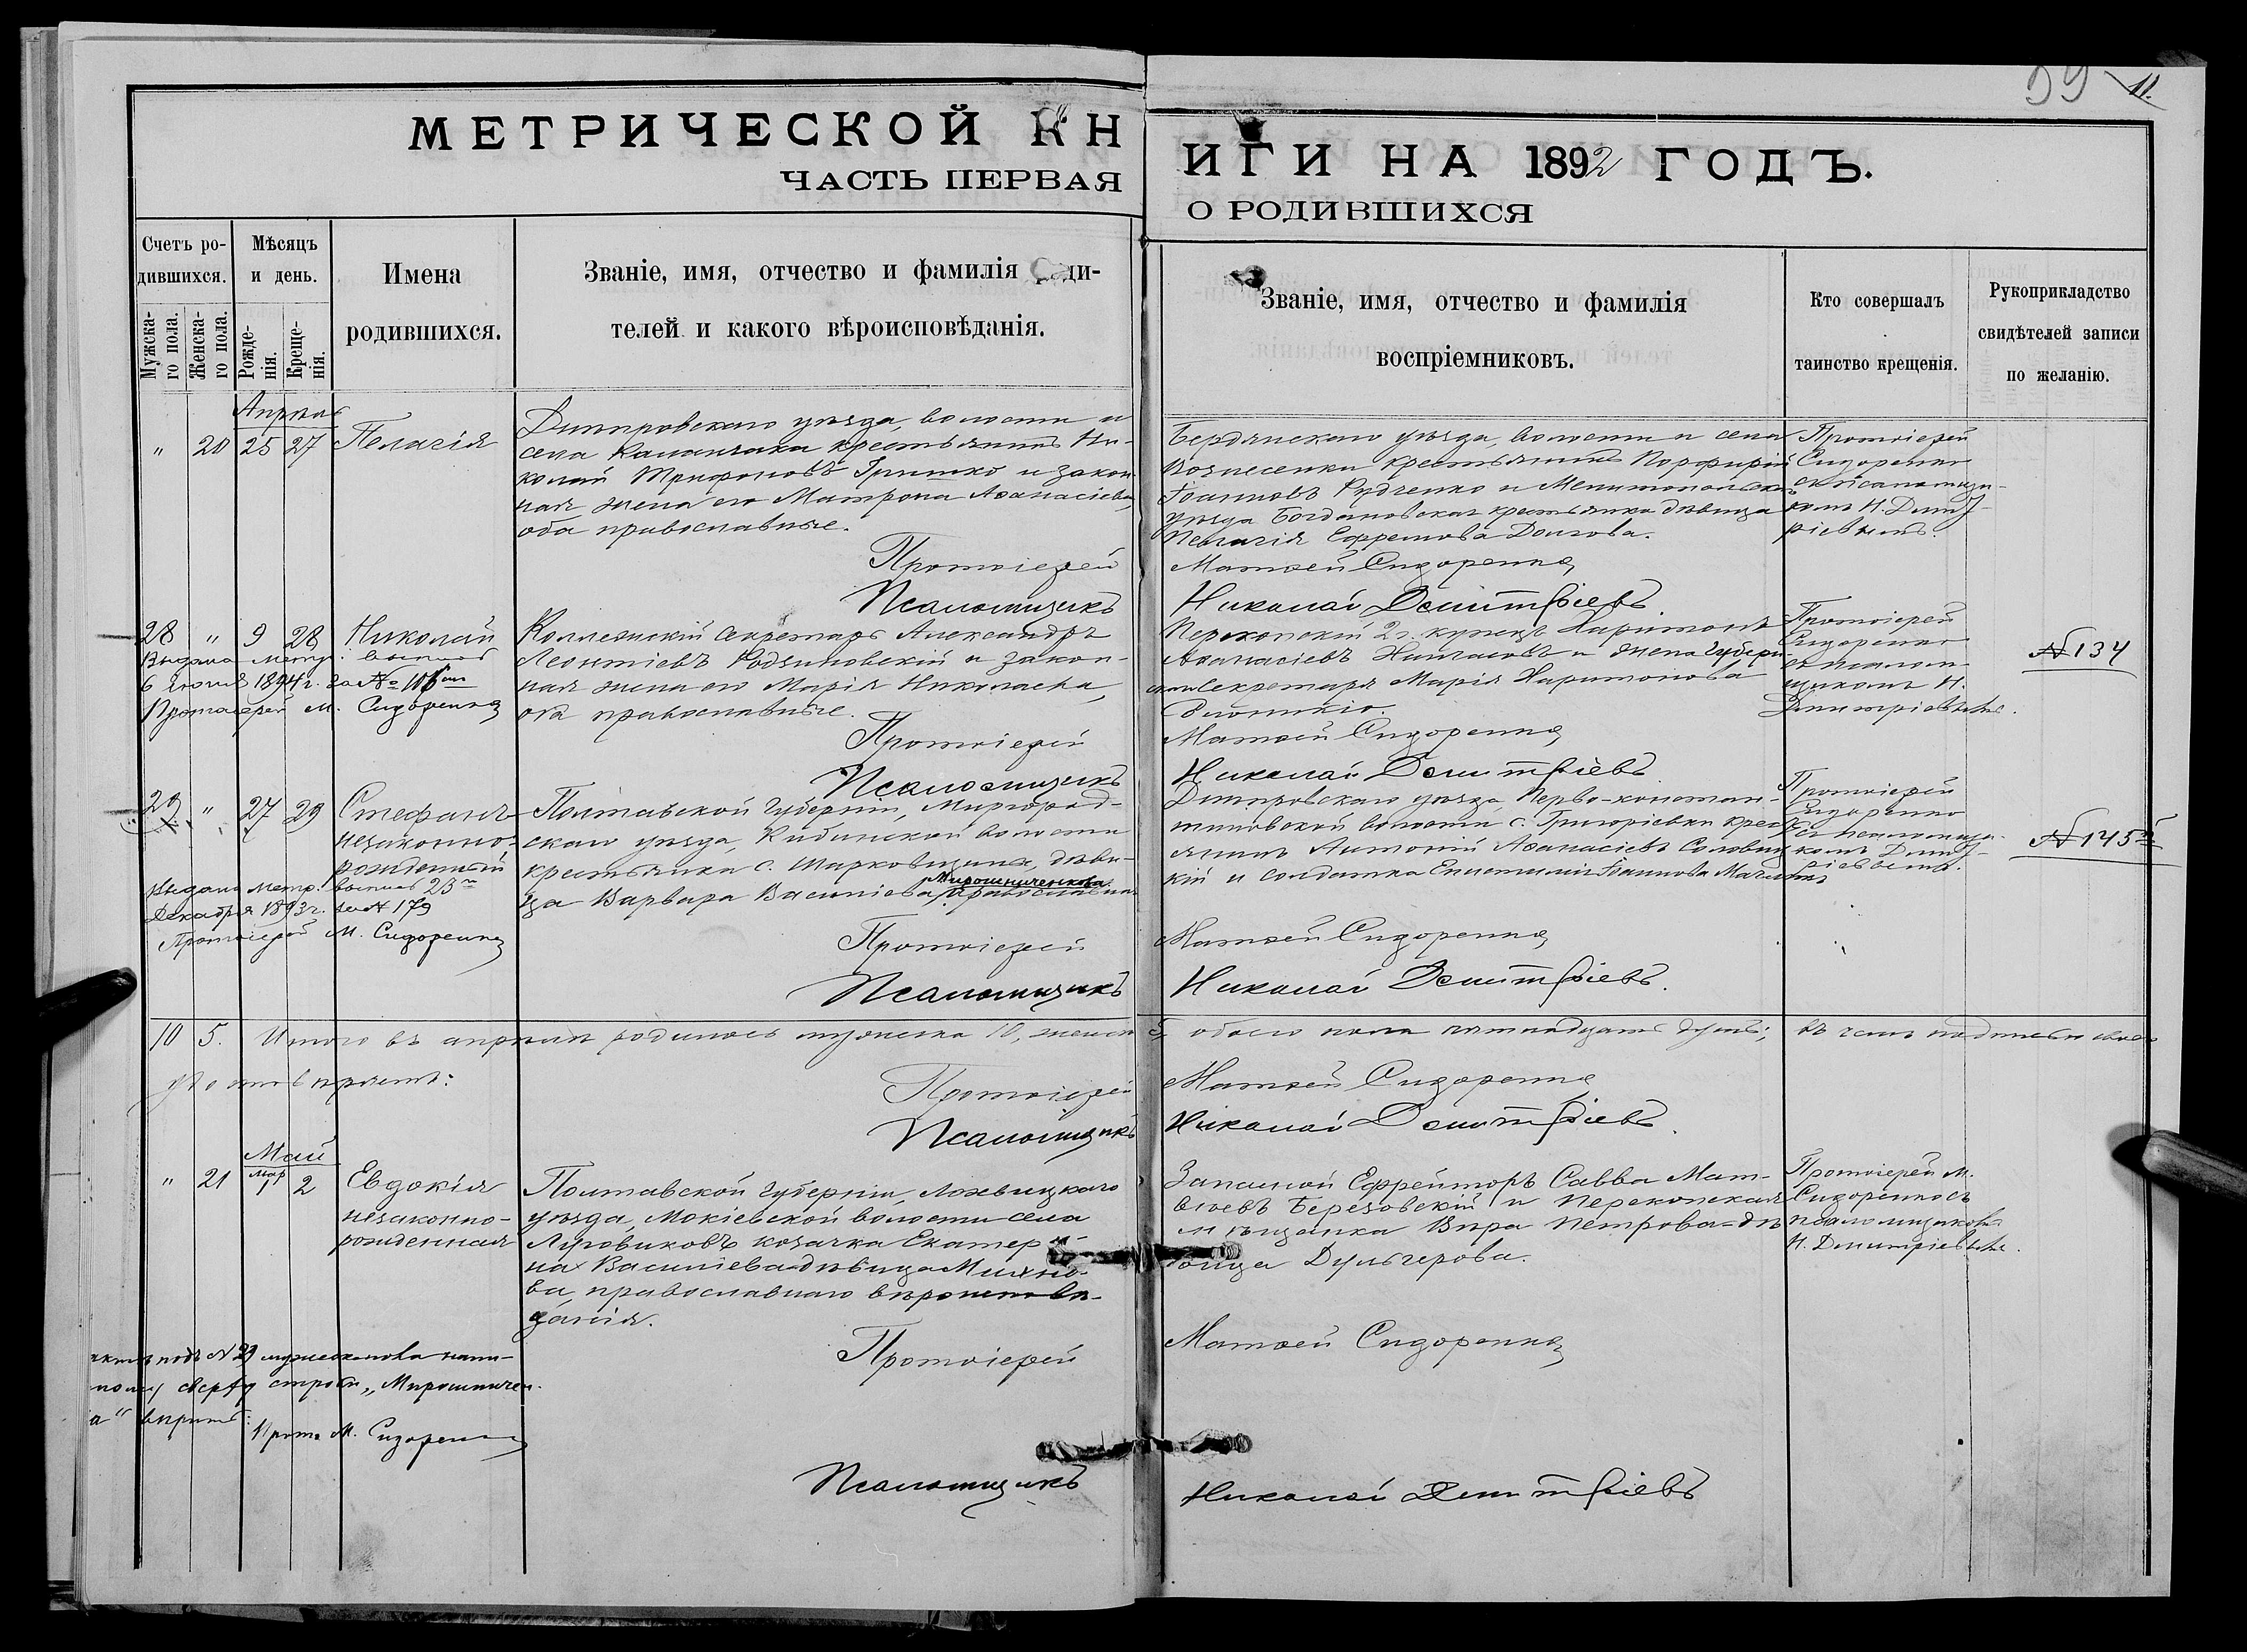 39 11.
МЕТРИЧЕСКОЙ КНИГИ НА 1892 ГОДЪ.
ЧАСТЬ ПЕРВАЯ О РОДИВШИХСЯ
Счетъ ро-
дившихся.
Мужска-
го пола.
Женска-
го пола.
Мѣсяцъ
и день.
Рожде-
нія.
Креще-
нія.
Имена
родившихся.
Званіе, имя, отчество и фамилія роди-
телей и какого вѣроисповѣданія.
Званіе, имя, отчество и фамилія
воспріемниковъ.
Кто совершалъ
таинство крещенія.
Рукоприкладство
свидѣтелей записи
по желанію.
Апрѣль
" 20 25 27 Пелагія
Днѣпровскаго уѣзда, волости и
села Каланчака крестьянинъ Ни-
колай Трифоновъ Гришко и закон-
ная жена его Матрона Аѳанасіева,
оба православные.
Протоіерей
Псаломщикъ
Бердянскаго уѣзда, волости и села
Вознесенки крестьянинъ Порфирій
Іоанновъ Рудченко и Мелитопольскаго
уѣзда Богдановская крестьянка дѣвица
Пелагія Ефремова Долгова.
Матѳей Сидоренко
Николай Дмитріевъ.
Протоіерей
Сидоренко
съ псаломщи-
комъ Н. Дмит-
ріевымъ.
28 " 9 28 Николай
Выдана метр. выпись
6 1894 г. за №
Протоіерей М. Сидоренко
Коллежскій Секретарь Александръ
Леонтіевъ Родзяновскій и закон-
ная жена его Марія Николаева,
оба православные.
Протоіерей
Псаломщикъ
Перекопскій 2 г. купецъ Харитонъ
Аѳанасіевъ и жена Губерн-
скаго Секретаря Марія Харитонова
Матѳей Сидоренко
Николай Дмитріевъ
Протоіерей
Сидоренко
съ псалом-
щикомъ Н.
Дмитріевымъ.
№ 134
29 " 27 29 Стефанъ
незаконно-
рожденный
Выдана метр. выпись 23
Декабря 1893 г. за № 179
Протоіерей М. Сидоренко
Полтавской губерніи, Миргород-
скаго уѣзда, Кибинской волости
крестьянка с. Марковщины, дѣви-
Мирошниченкова
ца Варвара Василіева, православная
Протоіерей
Псаломщикъ
Днѣпровскаго уѣзда, Перво-констан-
тиновской волости с. Григорьевки крест-
янинъ Антоній Аѳанасіевъ
кій и солдатка Епистимія Іоаннова
Матѳей Сидоренко
Николай Дмитріевъ.
Протоіерей
Сидоренко
съ псаломщи-
комъ Дмит-
ріевымъ.
№ 145
10 5. Итого въ апрѣлѣ родилось мужска 10, женск 5, обоего пола пятнадцать душъ; въ чемъ подписью свое-
ю
Протоіерей Матѳей Сидоренко
Псаломщикъ Николай Дмитріевъ.
Май
" 21 1 2 Евдокія
незаконно-
рожденная
Полтавской губерніи, Лохвицкаго
уѣзда, Мокіевской волости села
Луговиковъ козачка Екатери-
на Васильева дѣвица Михно-
ва, православнаго вѣроисповѣ-
данія.
Протоіерей
Псаломщикъ
Запасной Ефрейторъ Савва Мат-
вѣевъ Березовскій и Перекопская
мѣщанка Вѣра Петрова дѣ-
вица Дульгерова.
Матѳей Сидоренко
Николай Дмитріевъ
Протоіерей М.
Сидоренко съ
псаломщикомъ
Н. Дмитріевымъ.
подъ № 29 мужеска пола напи-
сверху строки „Мирошничен-
а" вѣрить:
Прот. М. Сидоренко